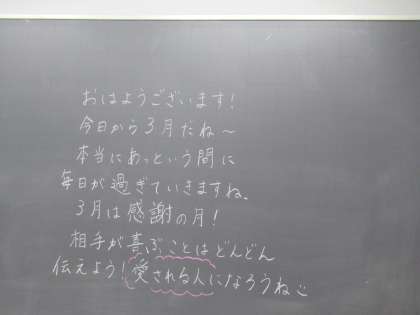 おはようございます!
今日から3月だね〜
本当にあっという間に
毎日が過ぎていきますね。
3月は感謝の月!
相手が喜ぶことはどんどん
伝えよう!愛される人になろうね